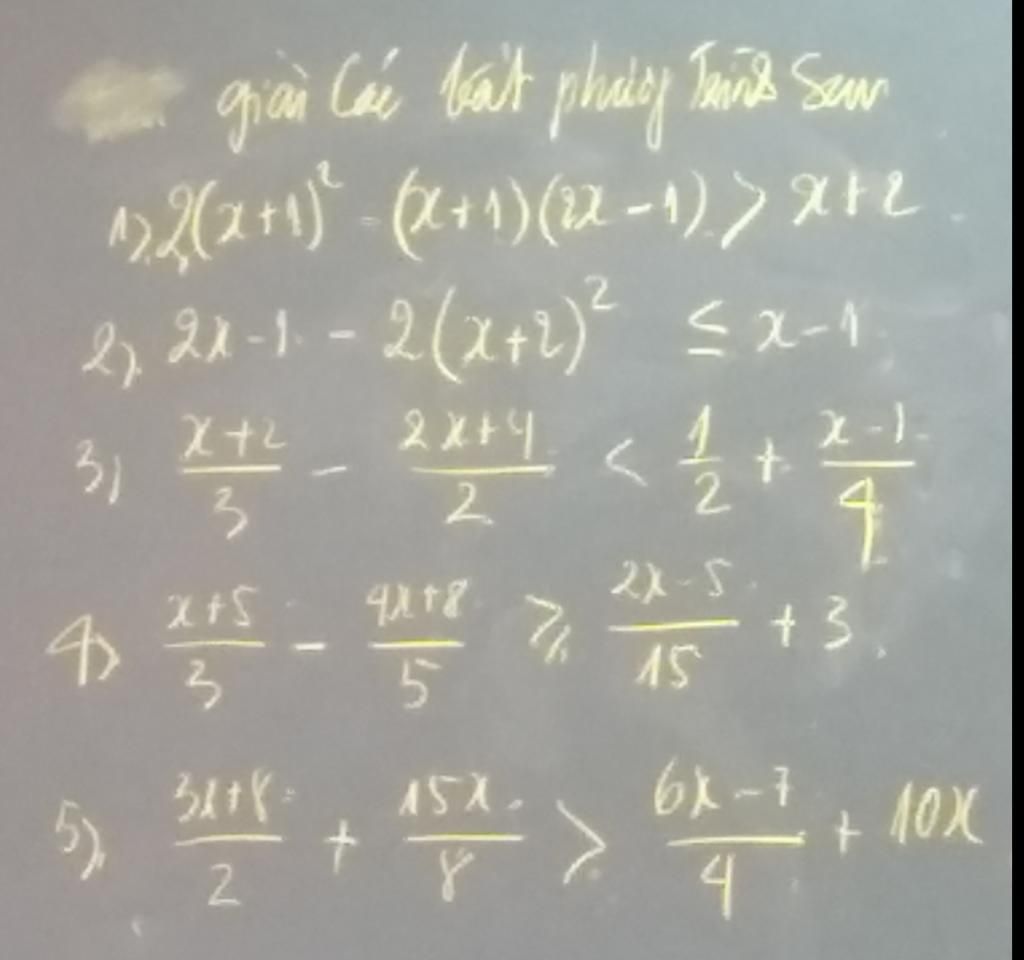 giải Các bất phương Trình Sau
1) 2(x+1)² - (x+1)(2x-1) > x+2
2) 2x-1 - 2(x+2)² ≤ x-1
3) \frac{x+2}{3} - \frac{2x+4}{2} < \frac{1}{2} + \frac{x-1}{4}
4) \frac{x+5}{3} - \frac{4x+8}{5} ≥ \frac{2x-5}{15} + 3
5) \frac{3x+8}{2} + \frac{15x}{8} > \frac{6x-7}{4} + 10x